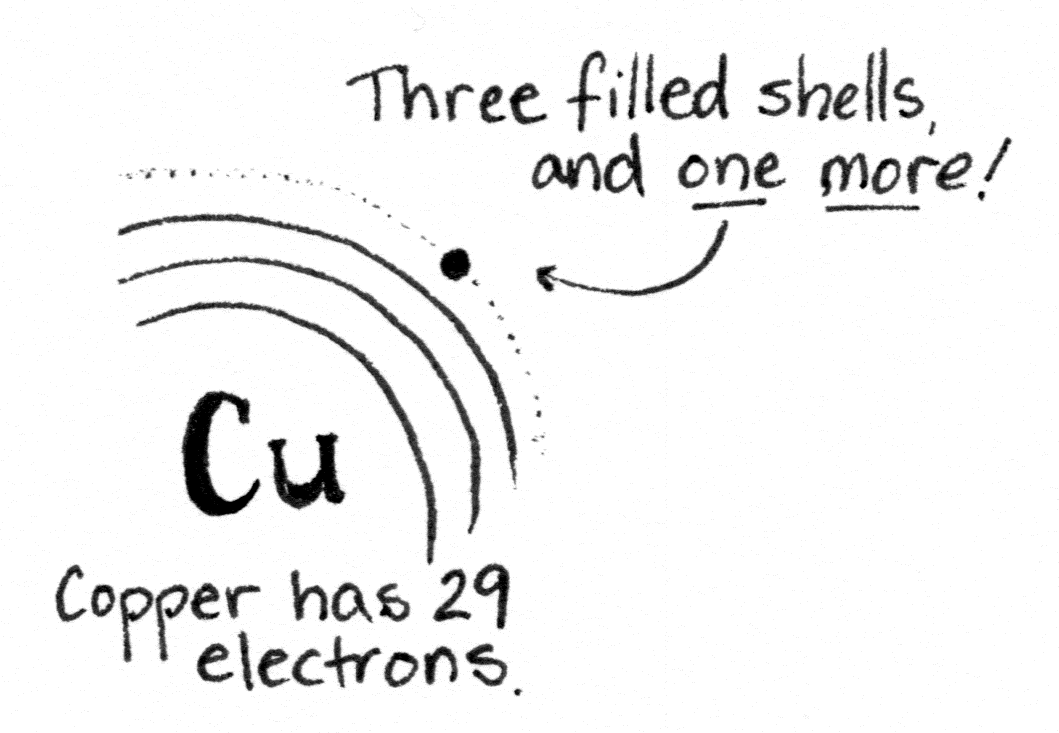 Three filled shells,
and one more!
Cu
Copper has 29
electrons.